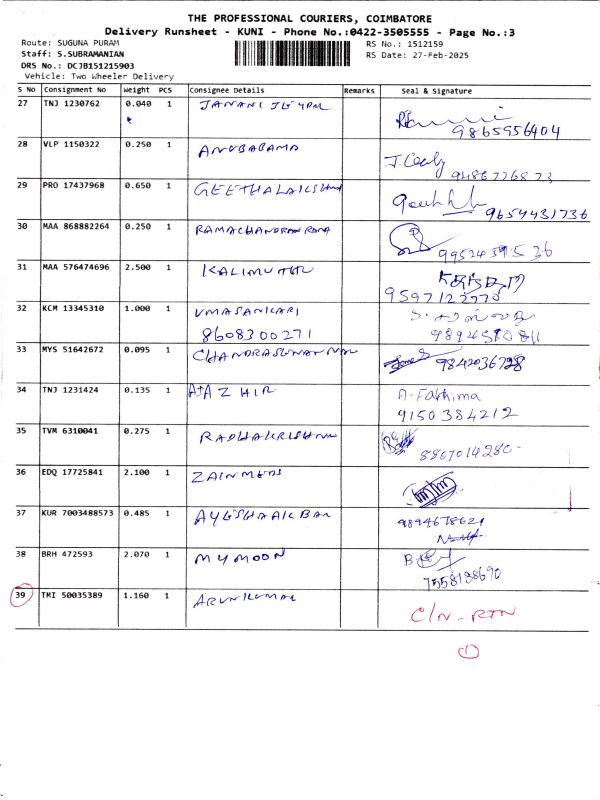 THE PROFESSIONAL COURIERS, COIMBATORE
Delivery Runsheet - KUNI - Phone No.:0422-3505555 - Page No.:3
Route: SUGUNA PURAM
RS No.: 1512159
Staff: S.SUBRAMANIAN
RS Date: 27-Feb-2025
DRS No.: DCJB151215903
Vehicle: Two Wheeler Delivery
S No Consignment No Weight PCS Consignee Details Remarks Seal & Signature
27 TNJ 1230762 0.040 1 JANANI
9865956404
28 VLP 1150322 0.250 1 ANUBABAMA
J.
29 PRO 17437968 0.650 1 GEETHALAKSHMI
9654431736
30 MAA 868882264 0.250 1 RAMACHANDRAN
31 MAA 576474696 2.500 1 KALIMUTHU
32 KCM 13345310 1.000 1 UMASANKARI
8608300271
33 MYS 51642672 0.095 1
9842036728
34 TNJ 1231424 0.135 1 A. Fathima
9150384212
35 TVM 6310041 0.275 1 RADHAKRISHNAN
8807014280-
36 EDQ 17725841 2.100 1 ZAINMEDS
37 KUR 7003488573 0.485 1
9894678621
38 BRH 472593 2.070 1 MYMOON
7558198690
39 TMI 50035389 1.160 1 ARUNKUMAR C/N - RTN
1